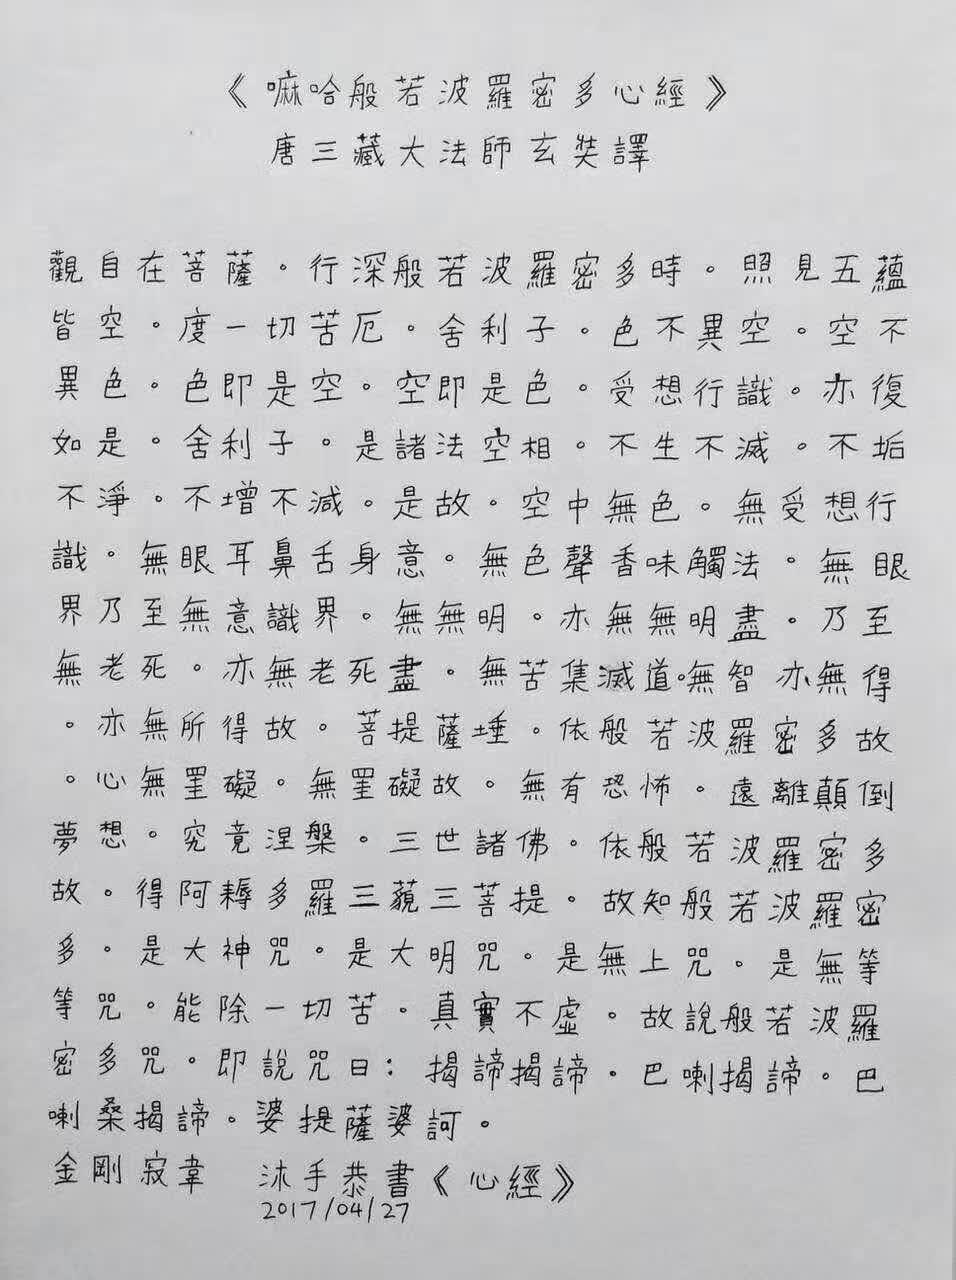 《嘛哈般若波羅密多心經》
唐三藏大法師玄奘譯
觀自在菩薩。行深般若波羅密多時。照見五蘊
皆空。度一切苦厄。舍利子。色不異空。空不
異色。色即是空。空即是色。受想行識。亦復
如是。舍利子。是諸法空相。不生不滅。不垢
不淨。不增不減。是故。空中無色。無受想行
識。無眼耳鼻舌身意。無色聲香味觸法。無眼
界乃至無意識界。無無明。亦無無明盡。乃至
無老死。亦無老死盡。無苦集滅道。無智亦無得
。亦無所得故。菩提薩埵。依般若波羅密多故
。心無罣礙。無罣礙故。無有恐怖。遠離顛倒
夢想。究竟涅槃。三世諸佛。依般若波羅密多
故。得阿耨多羅三藐三菩提。故知般若波羅密
多。是大神咒。是大明咒。是無上咒。是無等
等咒。能除一切苦。真實不虛。故說般若波羅
密多咒。即說咒曰：揭諦揭諦。巴喇揭諦。巴
喇桑揭諦。婆提薩婆訶。
金剛寂韋 沐手恭書《心經》
2017/04/27